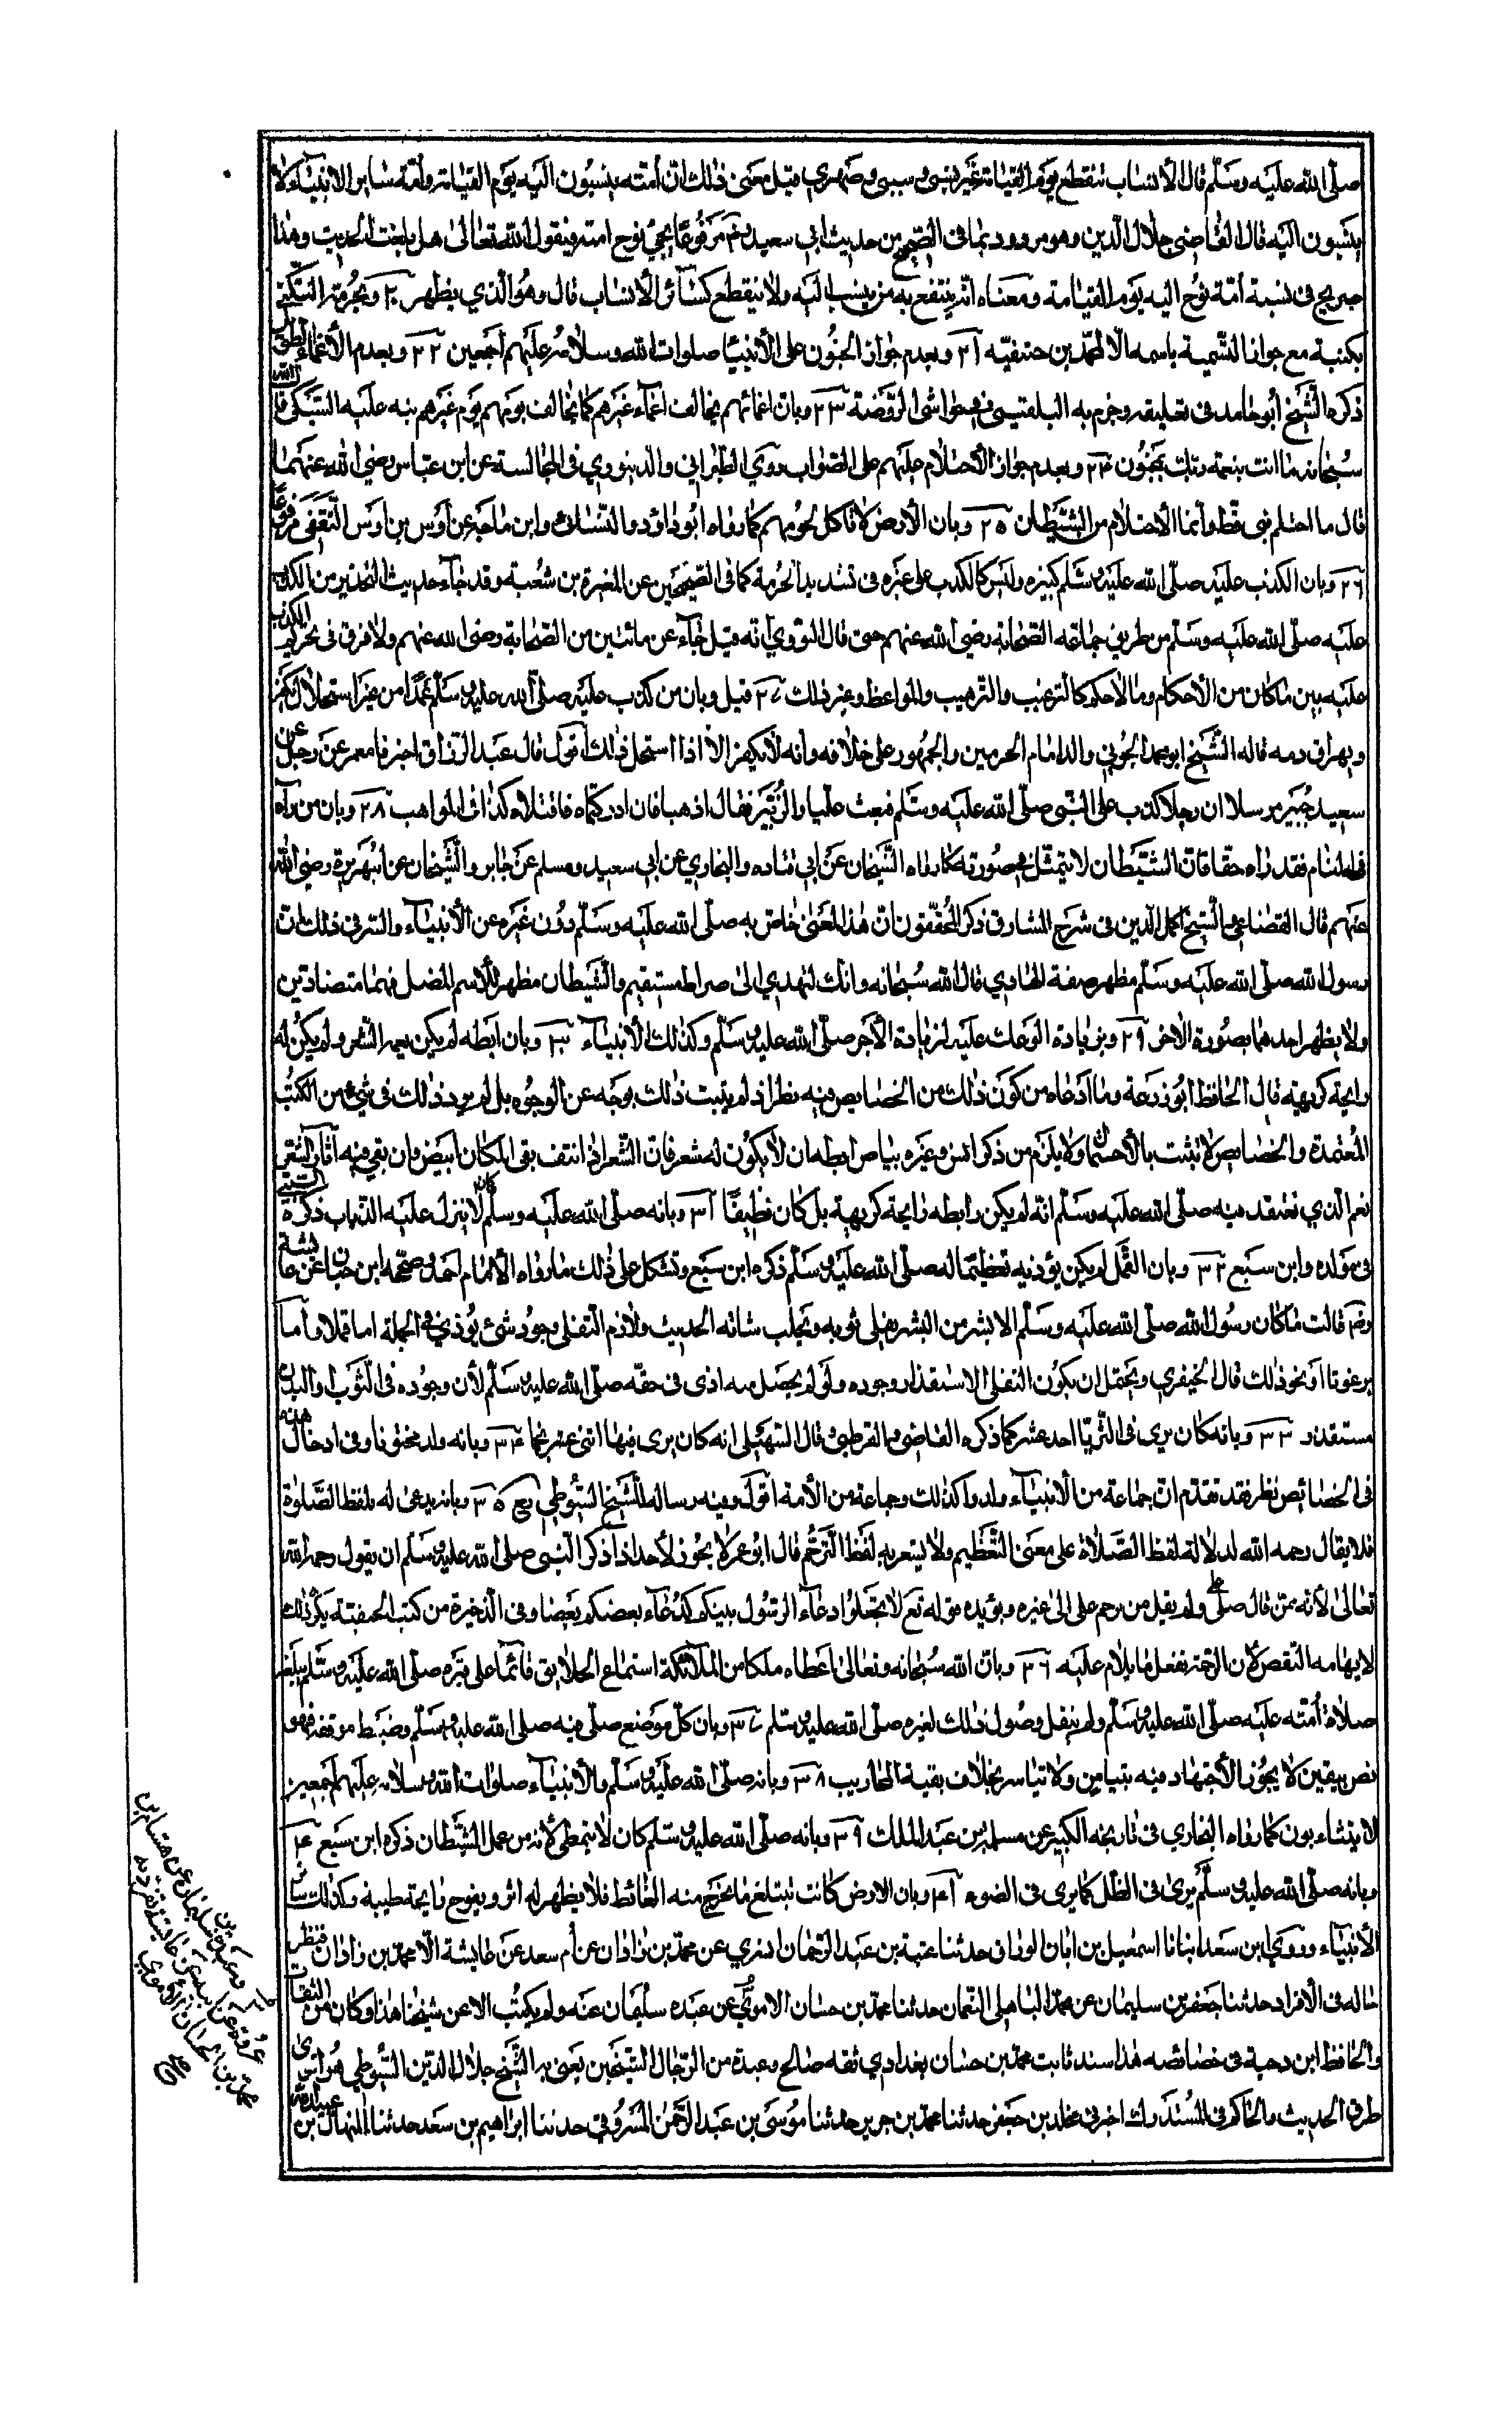 صلّى الله عليه وسلّم قال الأنساب تنقطع يوم القيامة غير نسبي وسببي وصهري قيل معنى ذلك انّ أمّته ينسبون اليه يوم القيامة وأمّة سائر الانبياء لا
ينسبون اليه قال القاضي جلال الدين وهو مردود بما في الصّحيح من حديث ابي سعيد رضه مرفوعًا يجيئ نوح امته فيقول الله تعالى هل بلغت الحديث وهذا
صريح في نسبة أمّة نوح اليه يوم القيامة ومعناه انّه ينتفع به من ينسب اليه ولا ينقطع كسائر الأنساب قال وهو الّذي يظهر ٢٠ وبحرمة التكنّي
بكنيته مع جواز التسمية باسمه الا لمحمّد بن حنفيّه ٢١ وبعدم جواز الجنون على الأنبياء صلوات الله وسلامه عليهم أجمعين ٢٢ وبعدم الأغماء الطويل
ذكره الشيخ أبو حامد في تعليقه وجزم به البلقيني في حواشي الروضة ٢٣ وبان اغمائهم يخالف اغماء غيرهم كما يخالف نومهم نوم غيرهم نبه عليه السّبكي قال الله
سبحانه ما انت بنعمة ربك بمجنون ٢٤ وبعدم جواز الأحتلام عليهم على الصّواب روى الطبراني والدينوري في المجالسة عن ابن عبّاس رضي الله عنهما
قال ما احتلم نبي قطّ وأنما الأحتلام من الشيطان ٢٥ وبان الأرض لا تأكل لحومهم كما رواه ابو داؤد والنسائ وابن ماجه عن أوس بن أوس الثقفي مرفوعًا
٢٦ وبان الكذب عليه صلّى الله عليه وسلّم كبيره وليس كالكذب على غيره في تشديد الحرمة كما في الصّحيحين عن المغيرة بن شعبة وقد جاء حديث التحذير من الكذب
عليه صلّى الله عليه وسلّم من طريق جماعة الصّحابة رضي الله عنهم حتى قال النووي أنّه قيل جاء عن مائتين من الصّحابة رضي الله عنهم ولا فرق في تحريم الكذب
عليه بين ما كان من الأحكام وما لا حكم كالترغيب والترهيب والمواعظ وغير ذلك ٢٧ قيل وبان من كذب عليه صلّى الله عليه وسلّم عمدًا من غير استحلال يكفر
ويهراق دمه قاله الشيخ ابو محمد الجويني والد امام الحرمين والجمهور على خلافه وأنه لا يكفر الّا اذا استحل ذلك أقول قال عبد الرزاق اخبرنا معمر عن رجل عن
سعيد جبير مرسلا ان رجلا كذب على النّبي صلّى الله عليه وسلّم فبعث عليا والزبير فقال اذهبا فان ادركتماه فاقتلاه كذا في المواهب ٢٨ وبان من رآه
في المنام فقد رآه حقا فانّ الشيطان لا يتمثّل في صورته كما رواه الشيخان عن ابي قتاده والبخاري عن ابي سعيد ومسلم عن جابر والشيخان عن ابي هريرة رضي الله
عنهم قال القضاعي والشيخ اكمل الدين في شرح المشارق ذكر المحقّقون انّ هذا المعنى خاص به صلّى الله عليه وسلّم دون غيره عن الأنبياء والسّر في ذلك انّ
رسول الله صلّى الله عليه وسلّم مظهر صفة الهادي قال الله سبحانه وانك لتهدي الى صراط مستقيم والشيطان مظهر للاسم المضل فهما متضادّين
ولا يظهر احدهما بصورة الآخر ٢٩ وبزيادة الوعك عليه لزيادة الأجر صلّى الله عليه وسلّم وكذلك الأنبياء ٣٠ وبان ابطه لم يكن عليه الشعر ولم يكن له
رايحة كريهة قال الحافظ ابو زرعة وما ادعاه من كون ذلك من الخصايص فيه نظر اذ لم يثبت ذلك بوجه عن الوجوه بل لم يرد ذلك في شيء من الكتب
المعتمدة والخصايص لا تثبت بالأحتمال ولا يلزم من ذكر انس وغيره بياض ابطه ان لا يكون له شعر فان الشعر اذا انتتف بقى المكان ابيض وان بقي فيه آثار الشعر
نعم الّذي نعتقد فيه صلّى الله عليه وسلّم انّه لم يكن لابطه رايحة كريهة بل كان نظيفًا ٣١ وبانه صلّى الله عليه وسلّم كان لا ينزل عليه الذباب ذكره السّبتي
في مولده وابن سبع ٣٢ وبان القمّل لم يكن يؤذيه تعظيمًا له صلّى الله عليه وسلّم ذكره ابن سبع وتشكل على ذلك ما رواه الأمام احمد وصحّحه ابن حبان عن عائشة
رضه قالت ما كان رسول الله صلّى الله عليه وسلّم الا بشر من البشر يفلي ثوبه ويحلب شاته الحديث ولازم التفلي وجود شئ يؤذي في الجملة اما قملا وأما
برغوثا او نحو ذلك قال الخيضري ويحتمل ان يكون التفلي لاستقذار وجوده ولو لم يحصل منه اذى في حقه صلّى الله عليه وسلّم لأن وجوده في الثوب او البدن
مستقذر ٣٣ وبانه كان يرى في الثّريّا احد عشر كما ذكره القاضي والقرطبي وقال السّهيلي انه كان يرى فيها اثني عشر نجما ٣٤ وبانه ولد مختونا وفي ادخال هذه
في الخصائص نظر فقد تقدم انّ جماعة من الأنبياء ولدوا كذلك وجماعة من الأمة اقول وفيه رسالة للشيخ السيوطي رح ٣٥ وبانه يدعى له بلفظ الصّلوة
فلا يقال رحمه الله لدلالة لفظ الصّلاة على معنى التّعظيم ولا يشعر به لفظ الترحّم قال ابو عمر لا يجوز لأحد اذا ذكر النّبي صلى الله عليه وسلّم ان يقول رحمه الله
تعالى لأنه ممّن قال صلّى عليّ ولم يقل من رحم على الى غيره ويؤيده قوله تع لا تجعلوا دعاء الرسول بينكم كدعاء بعضكم بعضا وفي الذخيرة من كتب الحنفية يكره ذلك
لايهامه النقص لأن الرحمة بفعل ما يلام عليه ٣٦ وبانّ الله سبحانه وتعالى اعطاه ملكا من الملآئكة استماع الخلايق قائمًا على قبره صلّى الله عليه وسلّم يبلغه
صلاة أمّته عليه صلّى الله عليه وسلّم ولم ينقل وصول ذلك لغيره صلّى الله عليه وسلّم ٣٧ وبان كلّ موضع صلّى فيه صلى الله عليه وسلّم وضبط موقفه فهو
نص بيقين لا يجوز الأجتهاد فيه بتيامن ولا تياسر بخلاف بقية المحاريب ٣٨ وبانه صلّى الله عليه وسلّم والأنبياء صلوات الله وسلامه عليهم أجمعين
لا يتثاءبون كما رواه البخاري في تاريخه الكبير عن مسلمة بن عبد الملك ٣٩ وبانه صلّى الله عليه وسلّم كان لا يتمطى لأنه من عمل الشيطان ذكره ابن سبع ٤٠
وبانه صلّى الله عليه وسلّم يرى في الظّل كما يرى في الضوء ٤١ وبان الارض كانت تبتلع ما يخرج منه الغائط فلا يظهر له اثر ويفوح رايحة طيبة وكذلك سائر
الأنبياء وروى ابن سعد انبانا اسمعيل بن ابان الوراق حدثنا عتبة بن عبد الرحمان عن محمّد بن زاذان عن أم سعد عن عايشة الّا محمّد بن زاذان
في الأفراد حدثنا جعفر بن سليمان عن محمّد الباهلي النّعمان حدثنا محمّد بن حسّان الاموي عن عبدة سليمان عنه ولم يكتب الا عن شيخنا هذا وكان من الثقات
والحافظ ابن دحية في خصائصه هذا سند ثابت محمّد بن حسّان بغدادي ثقه صالح وعبدة من الرّجال الشيخين يعنى به الشّيخ جلال الدّين السّيوطي هو اقوى
طرق الحديث والحاكم في المستدرك اخبرني مخلد بن جعفر حدثنا محمّد بن جرير حدثنا موسى بن عبد الرحمن المسروقي حدثنا ابراهيم بن سعد حدثنا المنهال بن عبيدالله